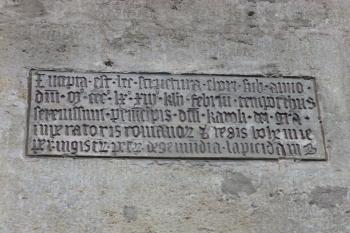 Incepta · est · hec structura · chori · sub · anno
dni · mº · ccc · lx · xiij · kln · februarii · temporibus
serenissimi · principis · dni · karoli · dei · gra
imperatoris romanor et regis bohemie
per · mgistr petr · de gemundia · lapicidam